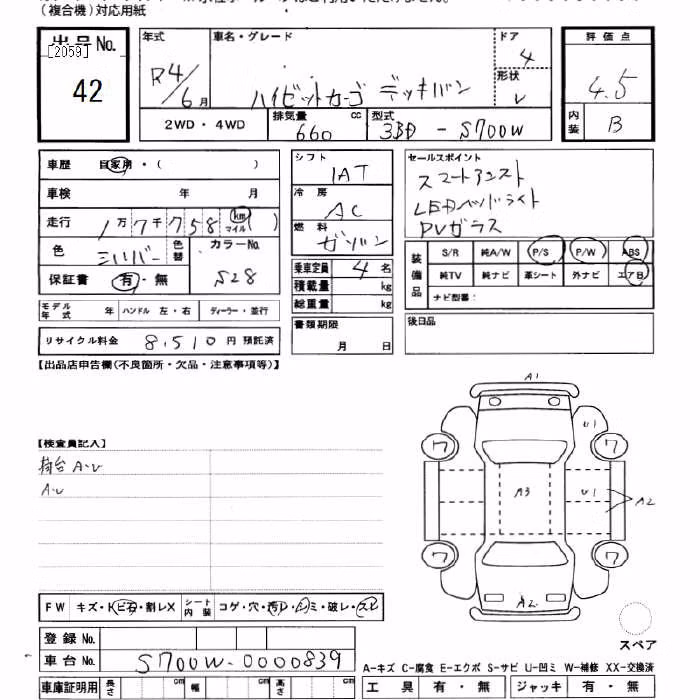 (複合機)対応用紙
出品No.
[2059]
42
年式
R4/6月
車名・グレード
ハイゼットカーゴ デッキバン
ドア
4
形状
V
評価点
4.5
内装
B
2WD・4WD
排気量
660
cc
型式
3BD-S700W
車歴 自家用・( )
車検 年 月
走行 1万7千758 km マイル
色 シルバー 色替
カラーNo.
S28
保証書 有・無
モデル年式 年 ハンドル 左・右 ディーラー・並行
リサイクル料金 8,510円 預託済
シフト
IAT
冷房
AC
燃料
ガソリン
乗車定員 4名
積載量 kg
総重量 kg
書類期限
月 日
セールスポイント
スマートアシスト
LEDヘッドライト
PVガラス
装備品
S/R 純A/W P/S P/W ABS
純TV 純ナビ 革シート 外ナビ エアB
ナビ型番:
後日品
【出品店申告欄(不良箇所・欠品・注意事項等)】
【検査員記入】
荷台 A・U
A・U
A1
U1
7
7
A3
U1
A2
7
7
A2
スペア
FW キズ・ヒビワ・割レX
シート内装 コゲ・穴・汚レ・シミ・破レ・スレ
登録No.
車台No. S700W-0000839
車庫証明用 長さ cm 幅 cm 高さ cm
A-キズ C-腐食 E-エクボ S-サビ U-凹ミ W-補修 XX-交換済
工具 有・無 ジャッキ 有・無